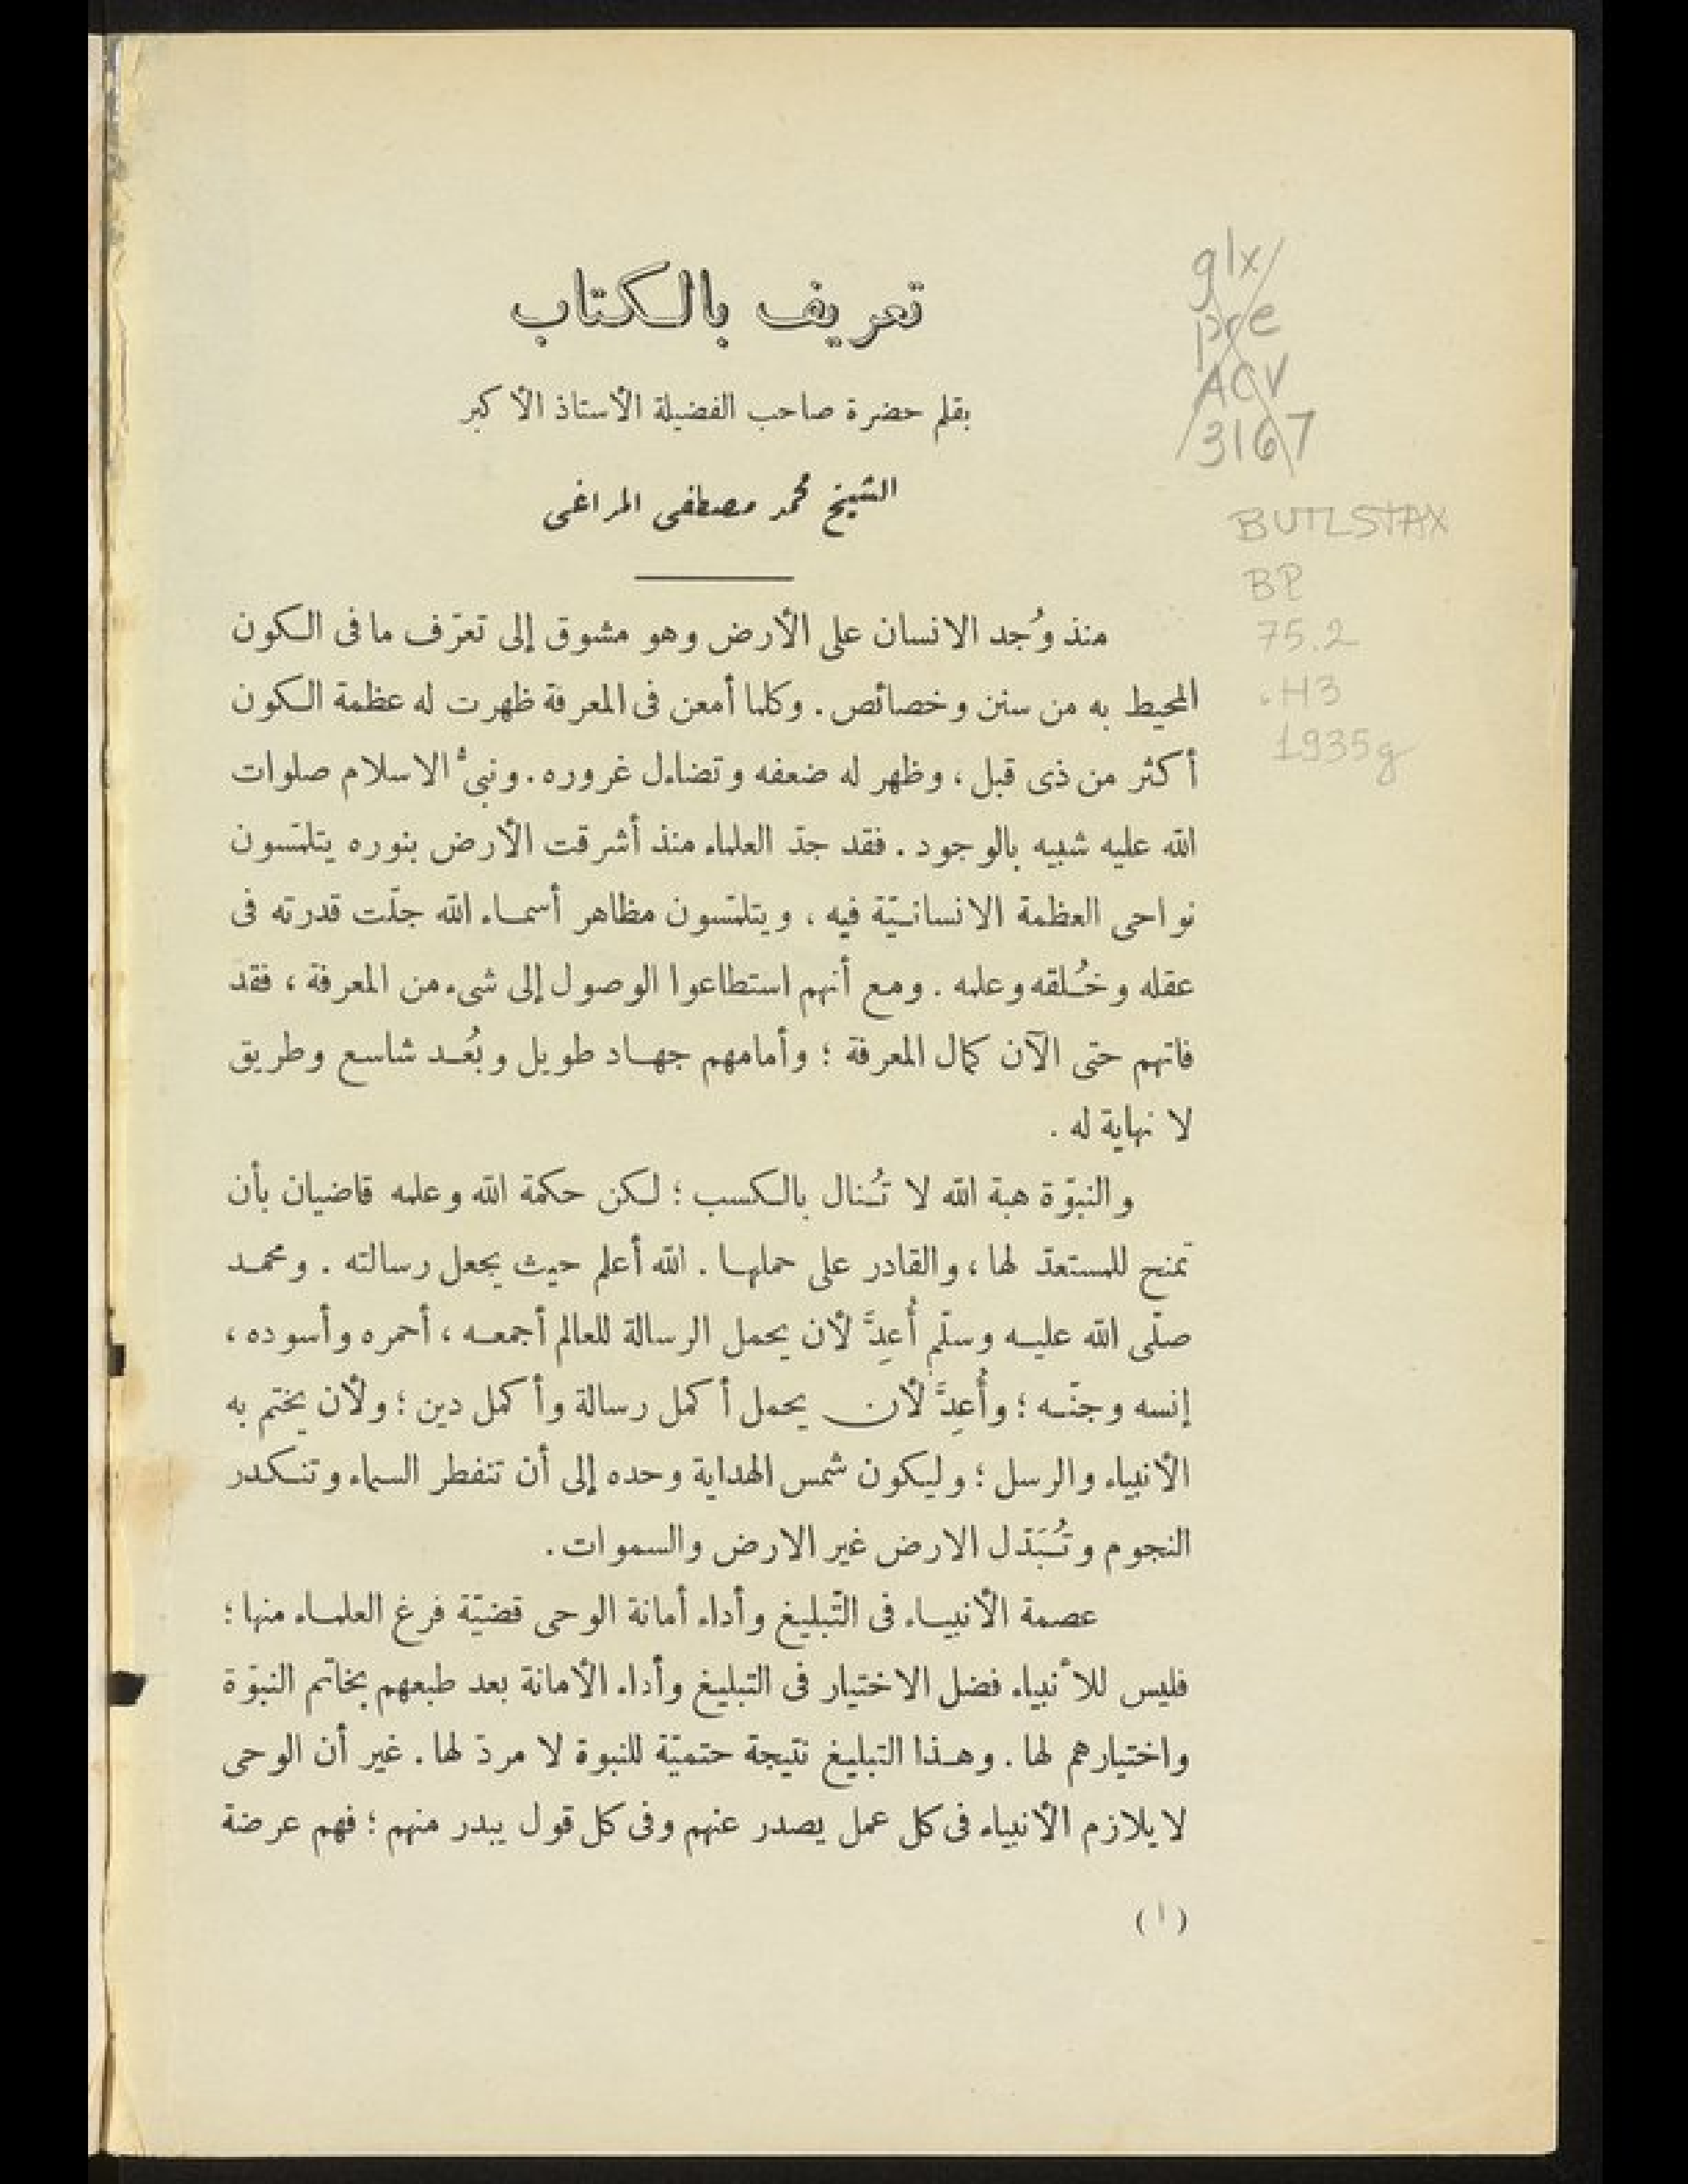 تعريف بالكتاب
بقلم حضرة صاحب الفضيلة الأستاذ الأكبر
الشيخ محمد مصطفى المراغى
منذ وُجد الانسان على الأرض وهو مشوق إلى تعرّف ما فى الكون
المحيط به من سنن وخصائص . وكلما أمعن فى المعرفة ظهرت له عظمة الكون
أكثر من ذى قبل ، وظهر له ضعفه وتضاءل غروره . ونبىُّ الاسلام صلوات
الله عليه شبيه بالوجود . فقد جدّ العلماء منذ أشرقت الأرض بنوره يتلمّسون
نواحى العظمة الانسانيّة فيه ، ويتلمّسون مظاهر أسماء الله جلّت قدرته فى
عقله وخُلقه وعلمه . ومع أنهم استطاعوا الوصول إلى شىء من المعرفة ، فقد
فاتهم حتى الآن كمال المعرفة ؛ وأمامهم جهاد طويل وبُعد شاسع وطريق
لا نهاية له .
والنبوّة هبة الله لا تُنال بالكسب ؛ لكن حكمة الله وعلمه قاضيان بأن
تمنح للمستعدّ لها ، والقادر على حملها . الله أعلم حيث يجعل رسالته . ومحمد
صلّى الله عليه وسلّم أُعِدَّ لأن يحمل الرسالة للعالم أجمعه ، أحمره وأسوده ،
إنسه وجنّه ؛ وأُعِدَّ لأن يحمل أكمل رسالة وأكمل دين ؛ ولأن يختم به
الأنبياء والرسل ؛ وليكون شمس الهداية وحده إلى أن تنفطر السماء وتنكدر
النجوم وتُبَدّل الارض غير الارض والسموات .
عصمة الأنبياء فى التّبليغ وأداء أمانة الوحى قضيّة فرغ العلماء منها ؛
فليس للأنبياء فضل الاختيار فى التبليغ وأداء الأمانة بعد طبعهم بخاتم النبوّة
واختيارهم لها . وهذا التبليغ نتيجة حتميّة للنبوة لا مردّ لها . غير أن الوحى
لا يلازم الأنبياء فى كل عمل يصدر عنهم وفى كل قول يبدر منهم ؛ فهم عرضة
(١)
glx/
pre
ACV
3167
BUTLSTAX
BP
75.2
.H3
1935g